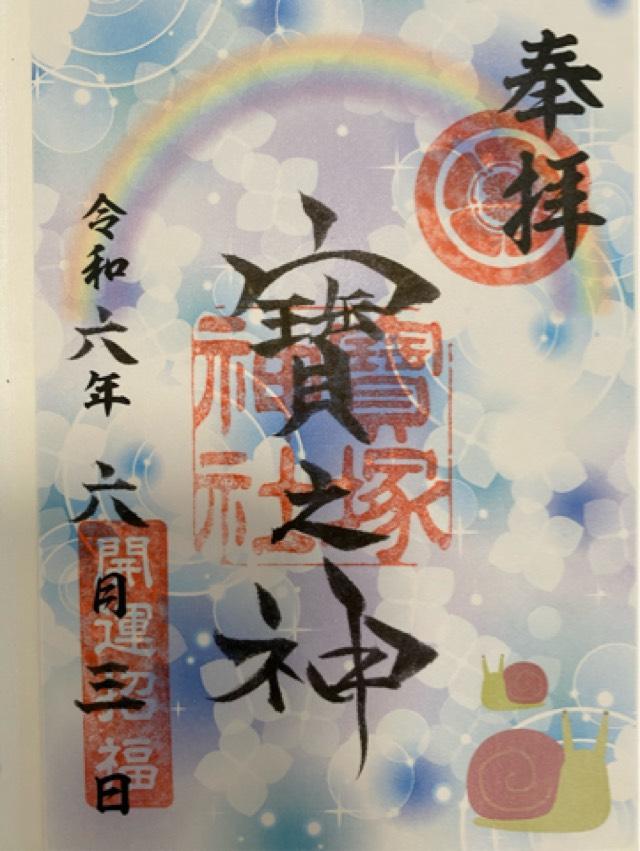 奉拝
寶之神
寶塚
神社
令和六年 六月三日
開運招福